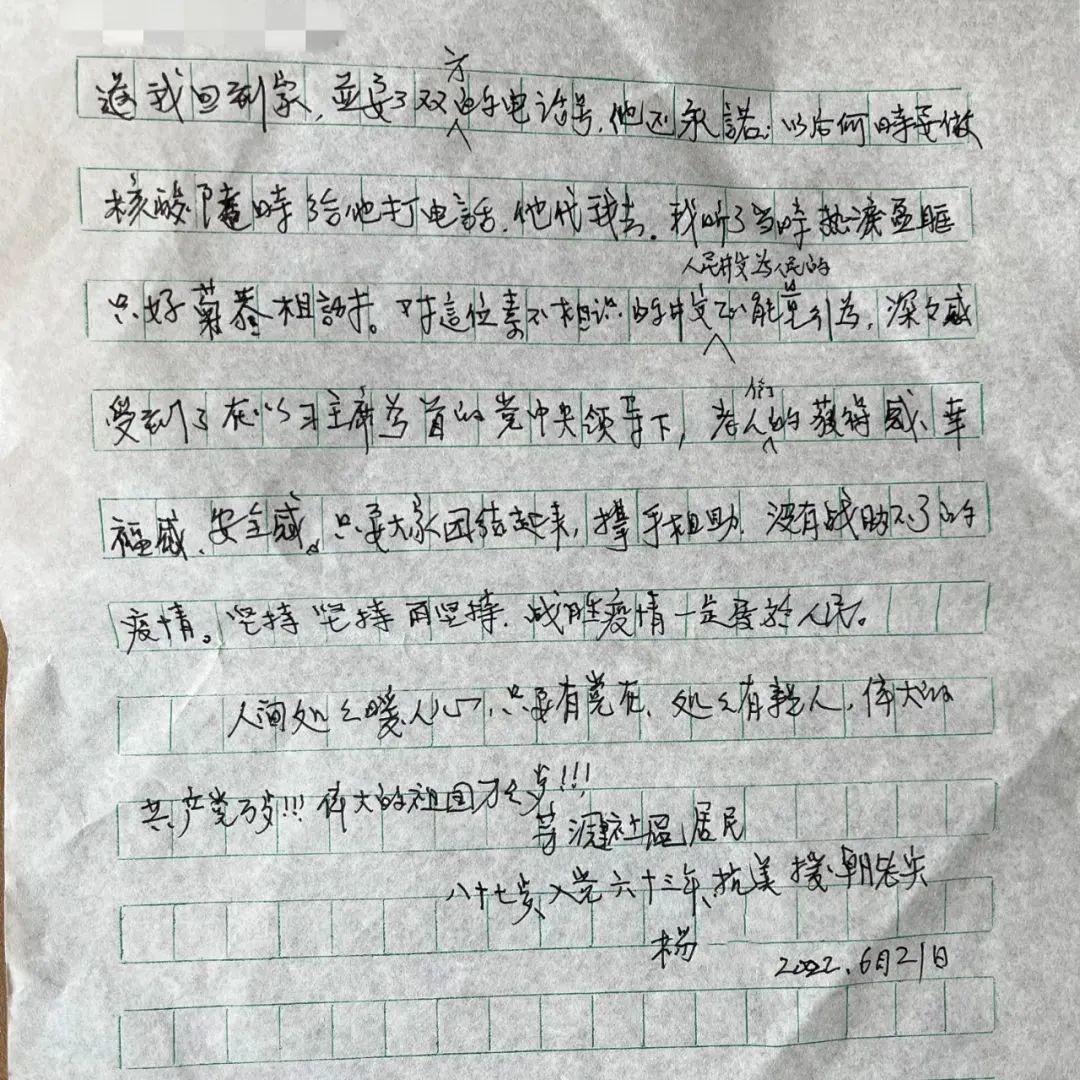 送我回到家,並要了双方的电话号,他还承諾:以后何時要做
核酸,随時给他打电話,他代我去。我听了当時热淚盈眶
只好菊恭相謝。对這位素不相识的人民警为人民的引为,深々感
受到了在以习主席為首的党中央领导下,老人们的获得感、幸
福感、安全感。只要大家团结起来,携手相助,没有战胜不了的
疫情。坚持坚持再坚持,战胜疫情一定属於人民。
人间处々暖人心,只要有党在,处々有親人,伟大的
共产党万岁!!!伟大的祖国万々岁!!!
社區居民
八十七岁、入党六十三年、抗美援朝老兵
楊
2022.6月21日